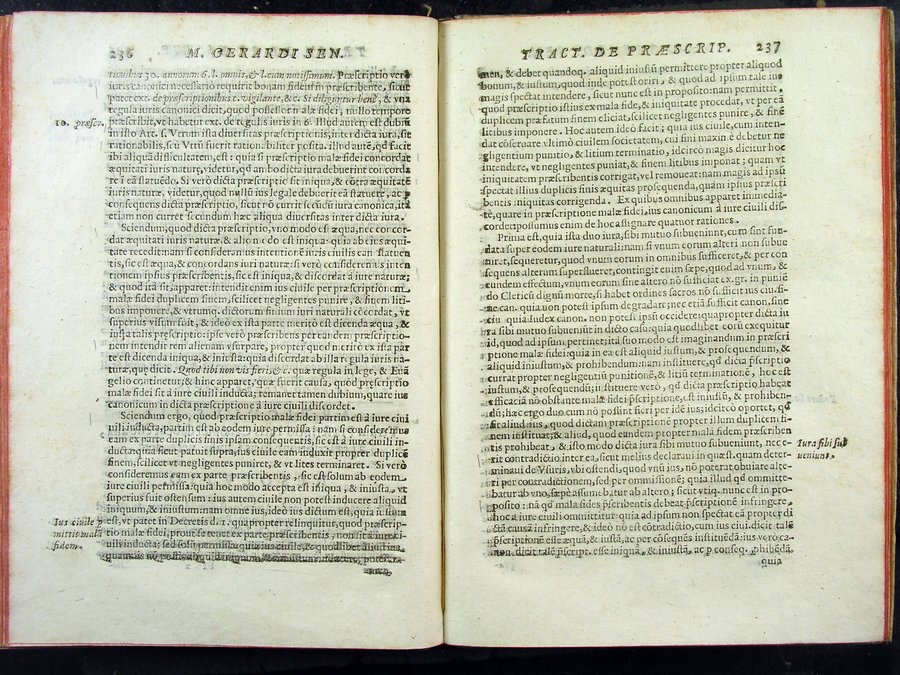 236 M. GERARDI SEN.
ctionibus 30. annorum 6. l. omnis, & l. cum notissimum. Præscriptio verò
iuris canonici necessariò requirit bonam fidem in præscribente, sicut
patet ext. de præscriptionibus c. vigilante, & c. Si diligenti bené, & vna
regula iuris canonici dicit, quod possessor malæ fidei, nullo tempore
10. præscr.
præscribit, vt habetur ext. de regulis iuris in 6. Illud autem est dubiũ
in isto Att. s. Vtrum ista diuersitas præscriptionis, inter dicta iura, sit
rationabilis, seu Vtrũ fuerit ration. biliter posita. illud autẽ, qd facit
ibi aliquã difficultatem, est: quia si præscriptio malæ fidei concordat
æquitati iuris naturę, videtur, qd ambo dicta iura debuerint concorda
re i ea statuẽdo. Si verò dicta præscriptio sit iniqua, & cõtra æquitatẽ
iuris naturæ, videtur, quod nullũ ius legale debuerit eã statuere, ac p
consequens dicta præscriptio, sicut nõ currit secundũ iura canonica, ita
etiam non curret secundum hæc aliqua diuersitas inter dicta iura.
Sciendum, quod dicta præscriptio, vno modo est æqua, nec concor-
dat æquitati iuris naturæ & alio modo est iniqua: quia ab ei' æqui-
tate recedit: nam si consideramus intentionẽ iuris ciuilis eam statuen
tis, sic est æqua, & concordat iuri naturæ: si verò consideremus inten
tionem ipsius præscribentis, sic est iniqua, & discordat à iure naturæ;
& quod ita sit, apparet: intendit enim ius ciuile per præscriptionem
malæ fidei duplicem finem, scilicet negligentes punire, & finem liti-
bus imponere, & vtrumq. dictorum finium iuri naturali cõcordat, vt
superius visum fuit, & ideò ex ista parte meritò est dicenda æqua, &
iusta talis præscriptio: ipse verò præscribens per eandem præscriptio-
nem intendit rem alienam vsurpare, propter quod meritò ex ista par
te est dicenda iniqua, & iniusta: quia discordat ab illa regula iuris na-
turæ, quę dicit. Quod tibi non vis fieri, & c. quæ regula in lege, & Euã
gelio continetur; & hinc apparet, quæ fuerit causa, quòd præscriptio
malæ fidei sit à iure ciuili inducta; remanet tamen dubium, quare ius
canonicum in dicta præscriptione à iure ciuili discordet.
Sciendum ergo, quòd præscriptio malæ fidei partim est à iure ciui
li inducta, partim est ab eodem iure permissa: nam si consideremus
eam ex parte duplicis finis ipsam consequentis, sic est à iure ciuili in-
ducta: quia sicut patuit supra, ius ciuile eam induxit propter duplicẽ
finem, scilicet vt negligentes puniret, & vt lites terminaret. Si verò
consideremus eam ex parte præscribentis, sic est solum ab eodem
iure ciuili permissa: quia hoc modo accepta est iniqua, & iniusta, vt
superius fuit ostensum: ius autem ciuile non potest inducere aliquid
iniquum, & iniustum: nam omne ius, ideò ius dictum est, quia iustum
Ius ciuile p
mittit malã
fidem.
est, vt patet in Decretis d. 1. quapropter relinquitur, quod præscrip-
tio malæ fidei, prout se tenet ex parte præscribentis, non sit à iure ci-
uili inducta; sed solùm permissa: quia ius ciuile, & quodlibet aliud ius,
TRACT. DE PRÆSCRIP. 237
men, & debet quandoq. aliquid iniustũ permittere propter aliquod
bonum, & iustum, quod inde potest oriri, & quod ad ipsum tale ius
magis spectat intendere, sicut nunc est in proposito: nam permittit,
quòd præscriptio istius ex mala fide, & iniquitate procedat, vt per eã
duplicem præfatum finem eliciat, scilicet negligentes punire, & finẽ
litibus imponere. Hoc autem ideò facit; quia ius ciuile, cum inten-
dat cõseruare vltimò ciuilem societatem, cui fini maximè debetur ne
gligentium punitio, & litium terminatio, idcircò magis dicitur hoc
intendere, vt negligentes puniat, & finem litibus imponat; quam vt
iniquitatem præscribentis corrigat, vel remoueat: nam magis ad ipsũ
spectat illius duplicis finis æquitas prosequenda, quàm ipsius præscri
bentis iniquitas corrigenda. Ex quibus omnibus apparet immedia-
tè, quare in præscriptione malæ fidei, ius canonicum à iure ciuili dis-
cordet: possumus enim de hoc assignare quatuor rationes.
Prima est, quia ista duo iura, sibi mutuo subueniunt, cum sint fun-
data super eodem iure naturali: nam si vnum eorum alteri non subue
niret, sequeretur, quod vnum eorum in omnibus sufficeret, & per con
sequens alterum superflueret; contingit enim sæpe, quod ad vnum, &
eundem effectum, vnum eorum sine altero nõ sufficiat ex. gr. in puniẽ
do Clericũ dignũ morte, si habet ordines sacros nõ sufficit ius ciu. si-
ne can. quia non potest ipsum degradare; nec etiã sufficit canon. sine
ciu. quia Iudex canon. non potest ipsũ occidere: quapropter dicta iu
ra sibi mutuo subuenisũt in dicto casu: quia quodlibet eorũ exequitur
id, quod ad ipsum pertinet; ita suo modo est imaginandum in præscri
ptione malæ fidei: quia in ea est aliquid iustum, & prosequendum, &
aliquid iniustum, & prohibendum: nam instituere, qd dicta pscriptio
currat propter negligentiũ punitionẽ, & litiũ terminationẽ, hoc est
iustum, & prosequendũ; instituere verò, qd dicta præscriptio habeat
efficaciã nõ obstante malæ fidei pscriptione, est iniustũ, & prohiben-
dũ; hæc ergo duo cum nõ possint fieri per idẽ ius; idcirco oportet, qd
sit aliud ius, quod dictam præscriptionẽ propter illum duplicem fi-
Iura sibi sub
ueniunt.
nem instituat; & aliud, quod eandem propter mala fidem præscriben
tis prohibeat, & isto modo dicta iura sibi mutuo subueniunt, nec e-
rit contradictio inter ea, sicut melius declaraui in quæst. quam deter-
minaui de Vsuris, vbi ostendi, quod vnũ ius, nõ poterat obuiare alte-
ri per contradictionem, sed per ommissionẽ; quia illud qd ommitte-
batur ab vno, sæpè assumebatur ab altero; sicut vtiq. nunc est in pro-
posito: nã qd malæ fidei pscribentis debeat pscriptionẽ infringere,
hoc à iure ciuili ommittitur: quia ad ipsum non spectat eã propter di
ctã causã infringere, & ideò nõ est cõtradictio, cum ius ciui. dicit talẽ
pscriptionẽ esse æquã, & iustã, ac per consequẽs instituẽdã, si ius ca-
non. dicit talẽ pscript. esse iniquã, & iniustã, ac p conseq. phibẽdã.
quia